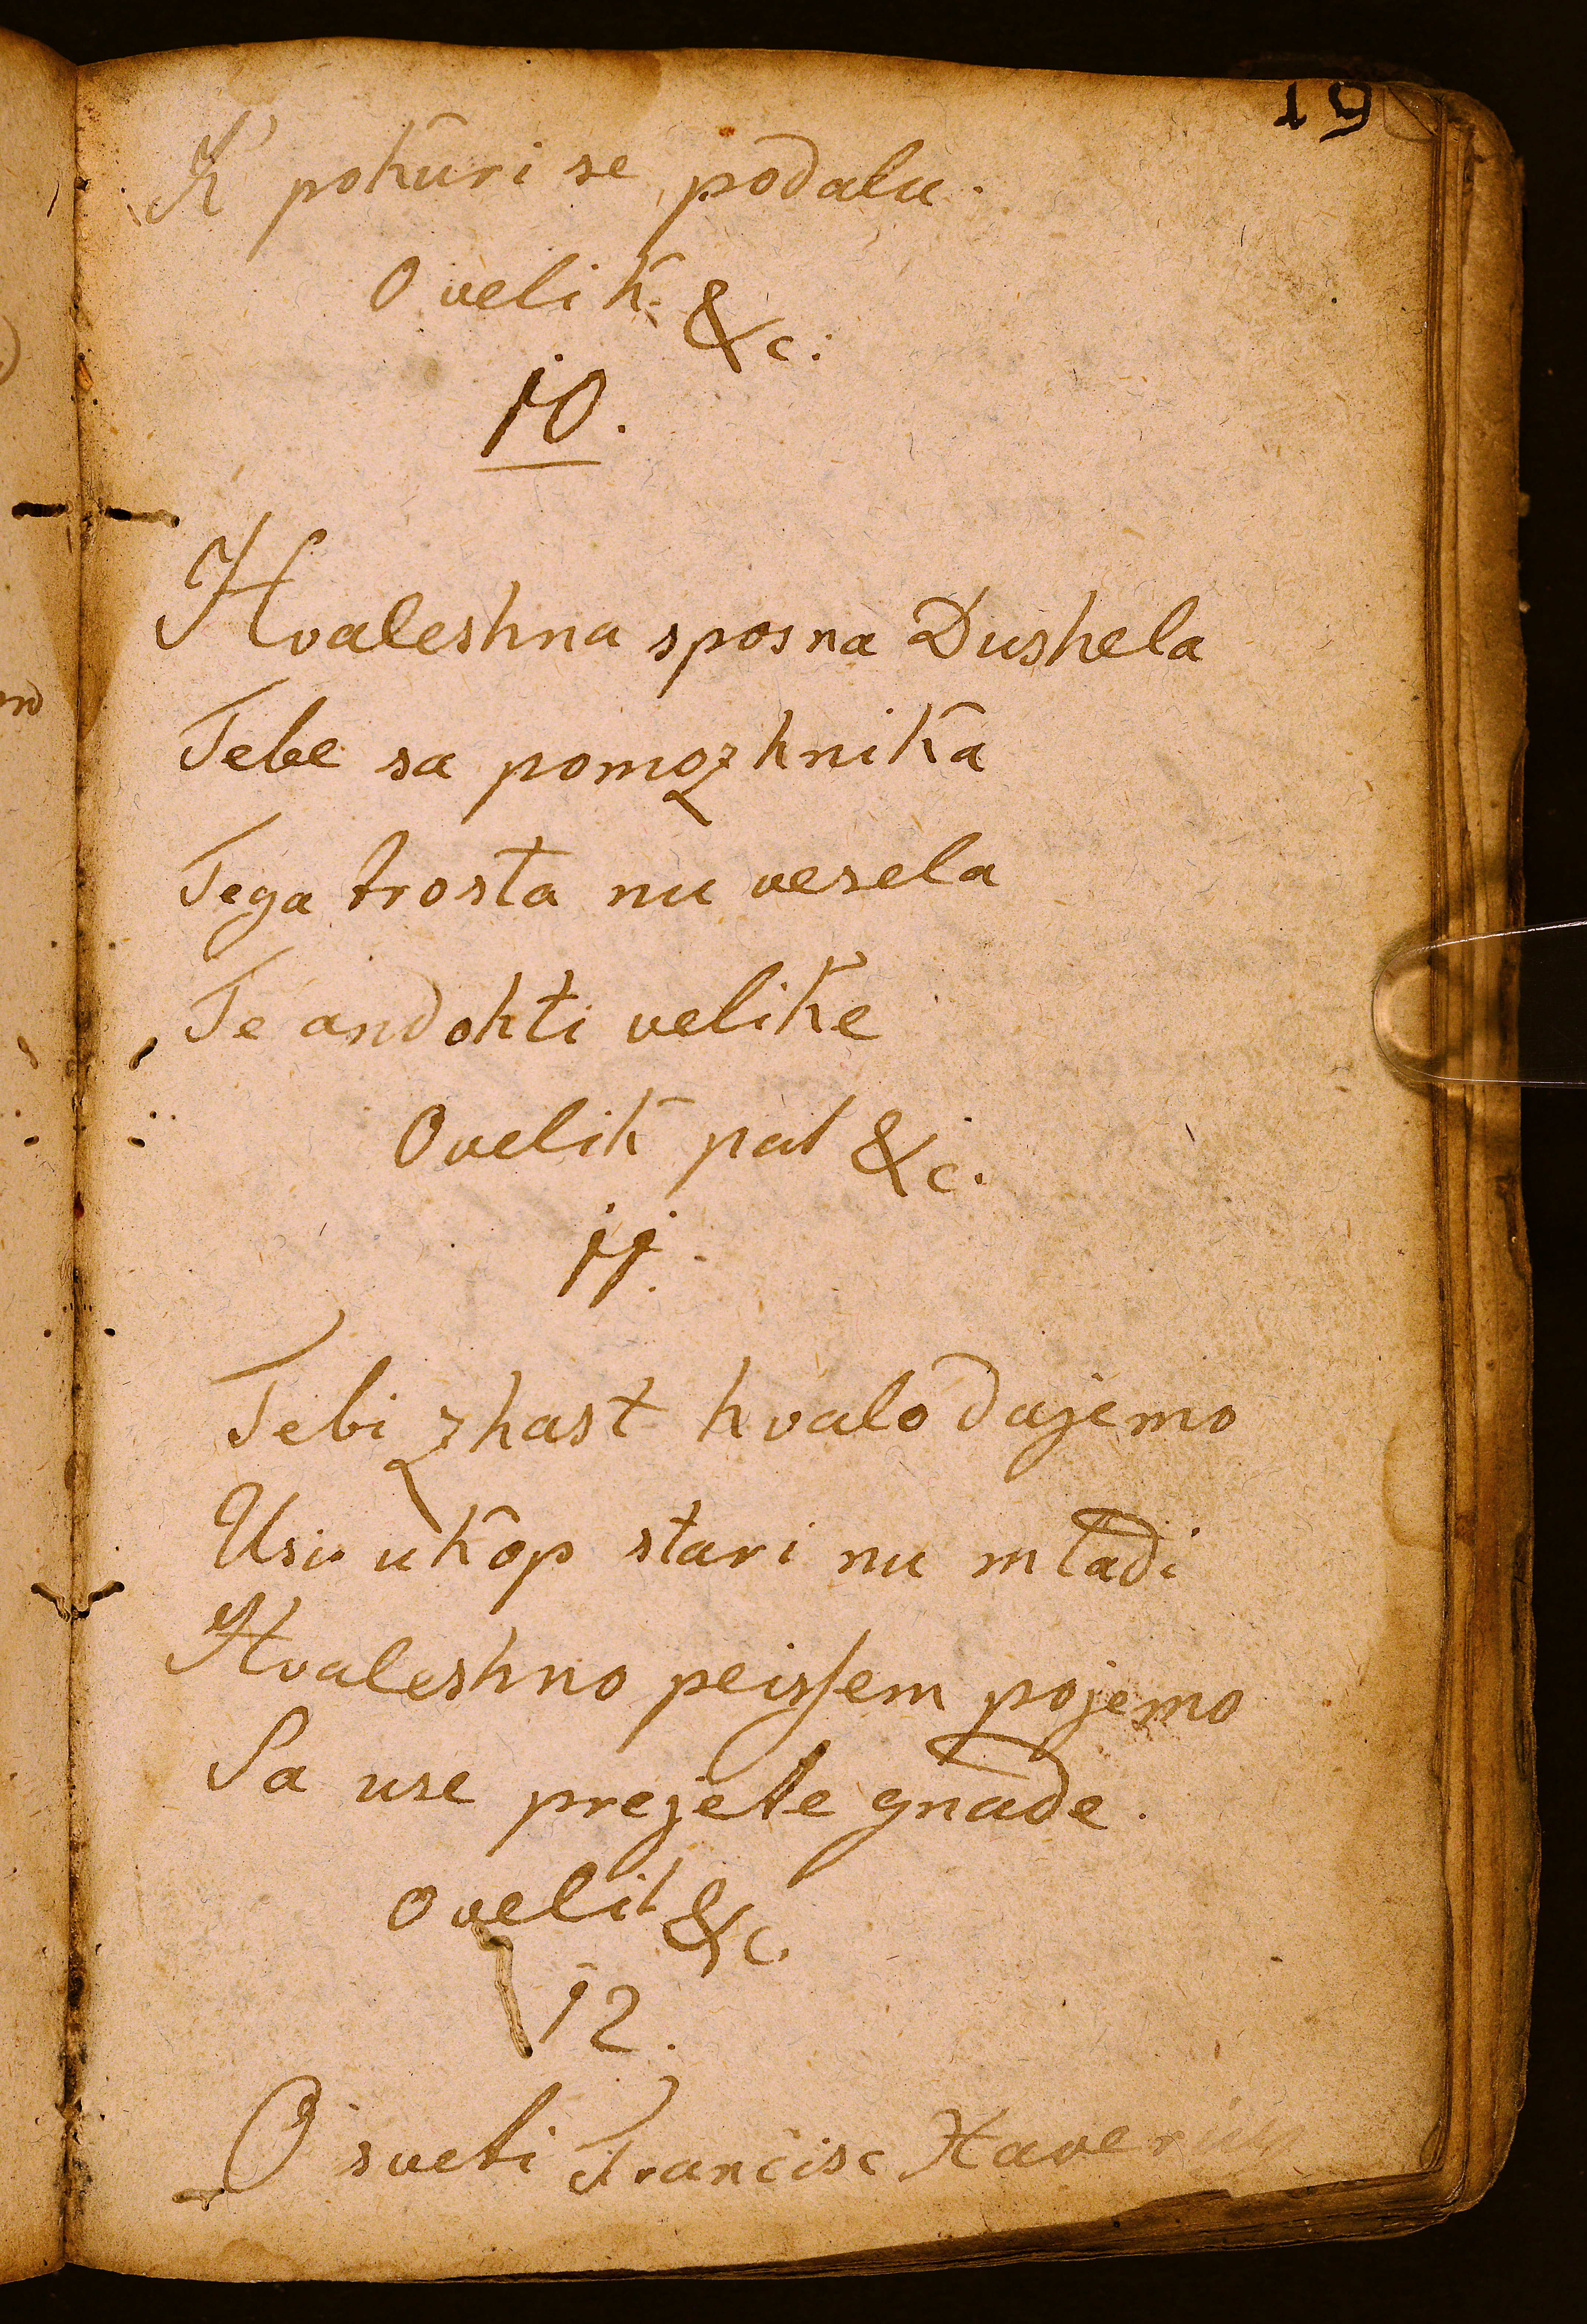 19
K' pokuri se podalu.
O velik. &c:
10.
Hvaleshna sposna Dushela
Tebe sa pomozhnika
Tega trosta nu vesela
Te andohti velike
O velik pat &c.
11.
Tebi zhast hvalo dajemo
Usi ukop stari nu mladi
Hvaleshno peissem pojemo
Sa use prejete gnade.
O velik &c.
12.
O sveti Francisc Xaverius